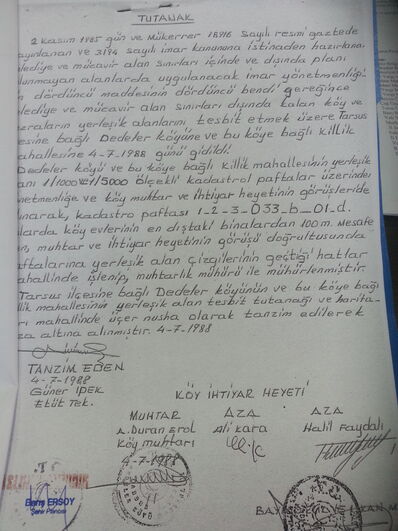 TUTANAK
2 Kasım 1985 gün ve Mükerrer 18916 Sayılı resmi gaztede
ayınlanan ve 3194 sayılı imar kanununa istinaden hazırlana
lediye ve mücavir alan sınırları içinde ve dışında planı
ulunmayan alanlarda uygulanacak imar yönetmeliği
n dördüncü maddesinin dördüncü bendi gereğince
lediye ve mücavir alan sınırları dışında kalan köy ve
zraların yerleşik alanlarını tesbit etmek üzere Tarsus
esine bağlı Dedeler köyüne ve bu köye bağlı Killik
ahallesine 4-7-1988 günü gidildi.
Dedeler köyü ve bu köye bağlı Killik mahallesinin yerleşik
anı 1/5000 ölçekli kadastrol paftalar üzerinden
netmenliğe ve köy muhtar ve ihtiyar heyetinin görüşleride
ınarak, kadastro paftası 1-2-3-033-b-01-d.
larda köy evlerinin en dıştaki binalardan 100 m. Mesafe
en, muhtar ve ihtiyar heyetinin görüşü doğrultusunda
aftalarına yerleşik alan çizgilerinin geçtiği hatlar
ahallinde işlenip, muhtarlık mühürü ile mühürlenmiştir.
Tarsus ilçesine bağlı Dedeler köyünün ve bu köye bağ
llik mahallesinin yerleşik alan tesbit tutanağı ve harita-
arı mahallinde üçer nusha olarak tanzim edilerek
za altına alınmıştır. 4-7-1988
TANZİM EDEN
4-7-1988
Güner İPEK
Etüt Tek.
KÖY İHTİYAR HEYETİ
MUHTAR AZA AZA
A. Duran Erol Ali Kara Halil Faydalı
Köy muhtarı
4-7-1988
T.C.
Barış ERSOY
Şehir Plancısı